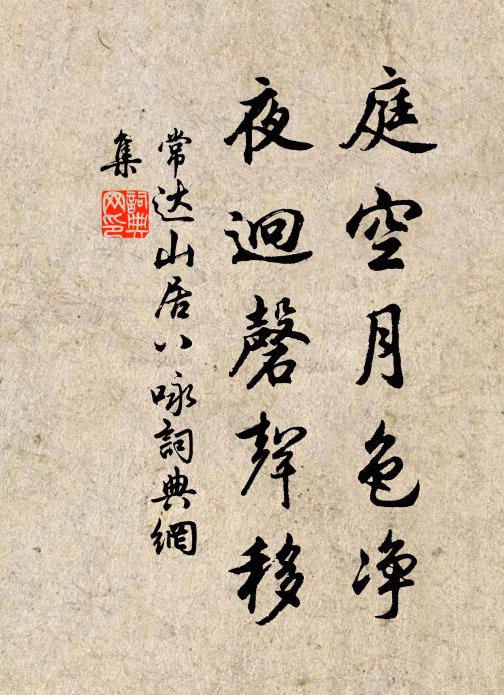 庭空月色净
夜迥磬聲移
常达山居八咏詞典網
集
詞典
网印